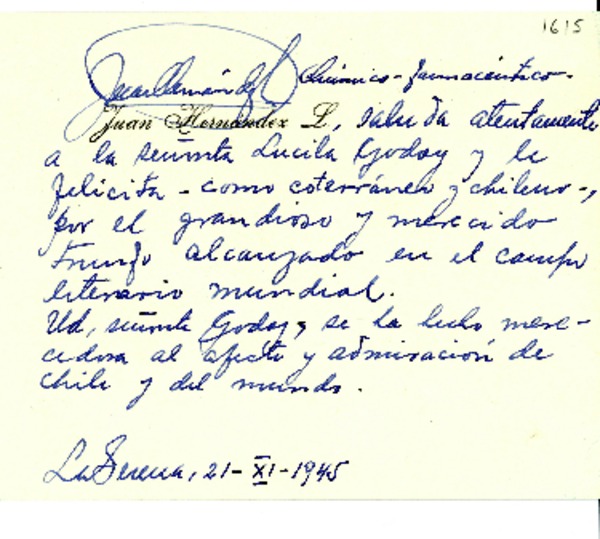 1615
Juan Hernández L Químico-farmacéutico.
Juan Hernández L, saluda atentamente
a la señorita Lucila Godoy y le
felicita - como coterráneo y chileno -,
por el grandioso y merecido
triunfo alcanzado en el campo
literario mundial.
Ud, señorita Godoy, se ha hecho mere-
cedora al afecto y admiración de
Chile y del mundo.
La Serena, 21-XI-1945